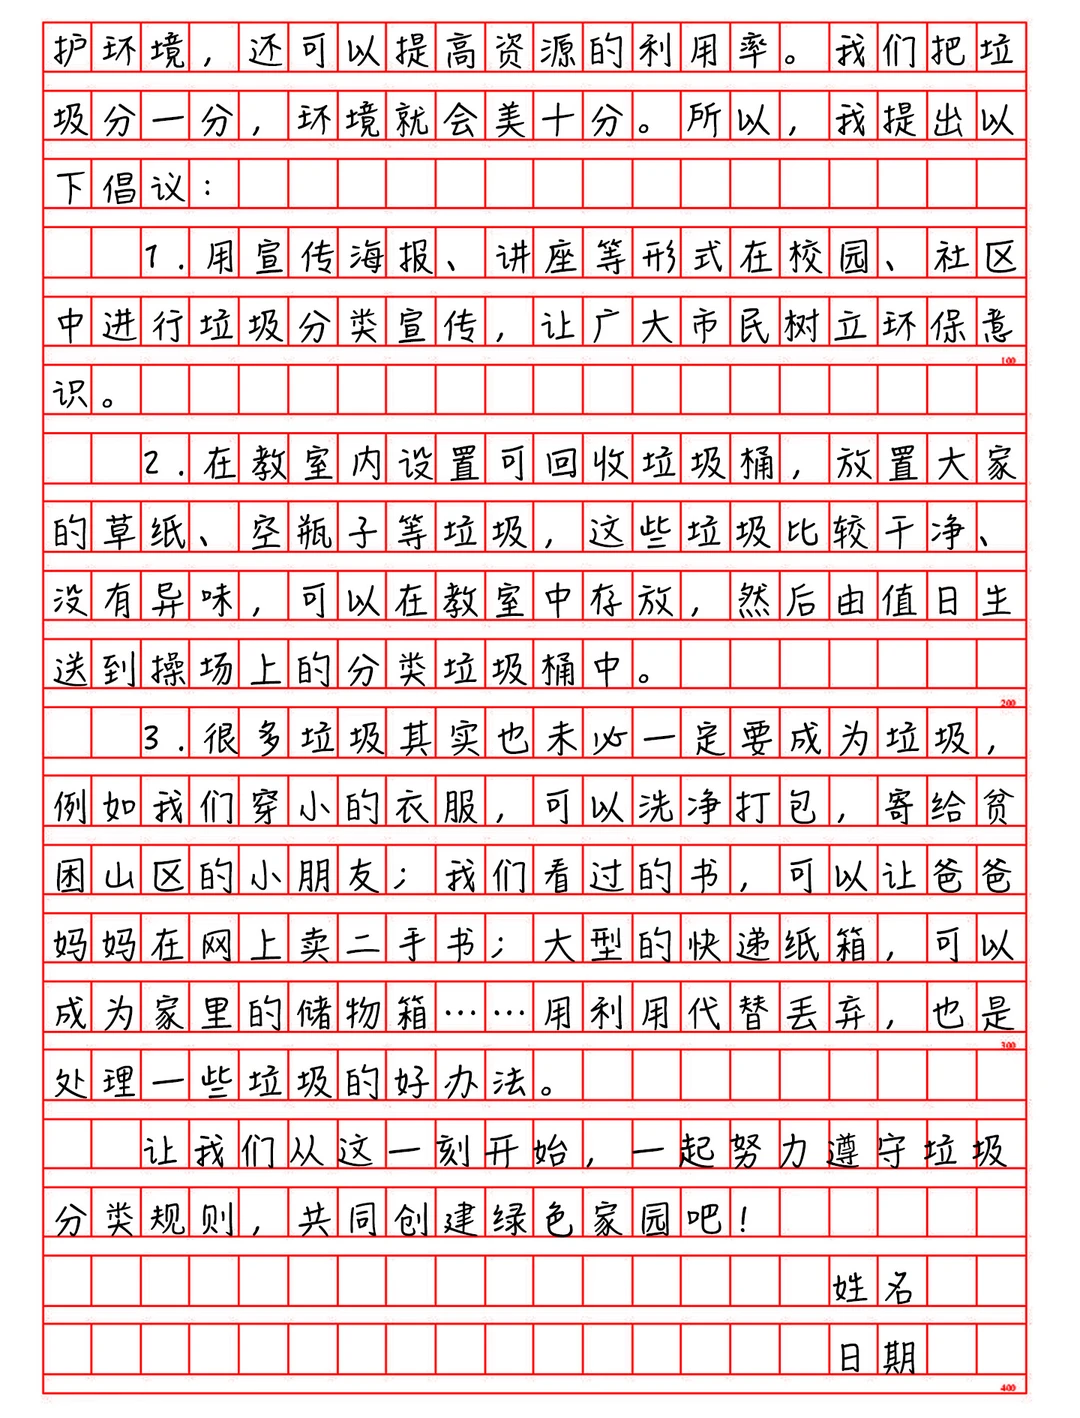 护环境，还可以提高资源的利用率。我们把垃
圾分一分，环境就会美十分。所以，我提出以
下倡议：
1.用宣传海报、讲座等形式在校园、社区
中进行垃圾分类宣传，让广大市民树立环保意
100
识。
2.在教室内设置可回收垃圾桶，放置大家
的草纸、空瓶子等垃圾，这些垃圾比较干净、
没有异味，可以在教室中存放，然后由值日生
送到操场上的分类垃圾桶中。
200
3.很多垃圾其实也未必一定要成为垃圾，
例如我们穿小的衣服，可以洗净打包，寄给贫
困山区的小朋友；我们看过的书，可以让爸爸
妈妈在网上卖二手书；大型的快递纸箱，可以
成为家里的储物箱……用利用代替丢弃，也是
300
处理一些垃圾的好办法。
让我们从这一刻开始，一起努力遵守垃圾
分类规则，共同创建绿色家园吧！
姓名
日期
400